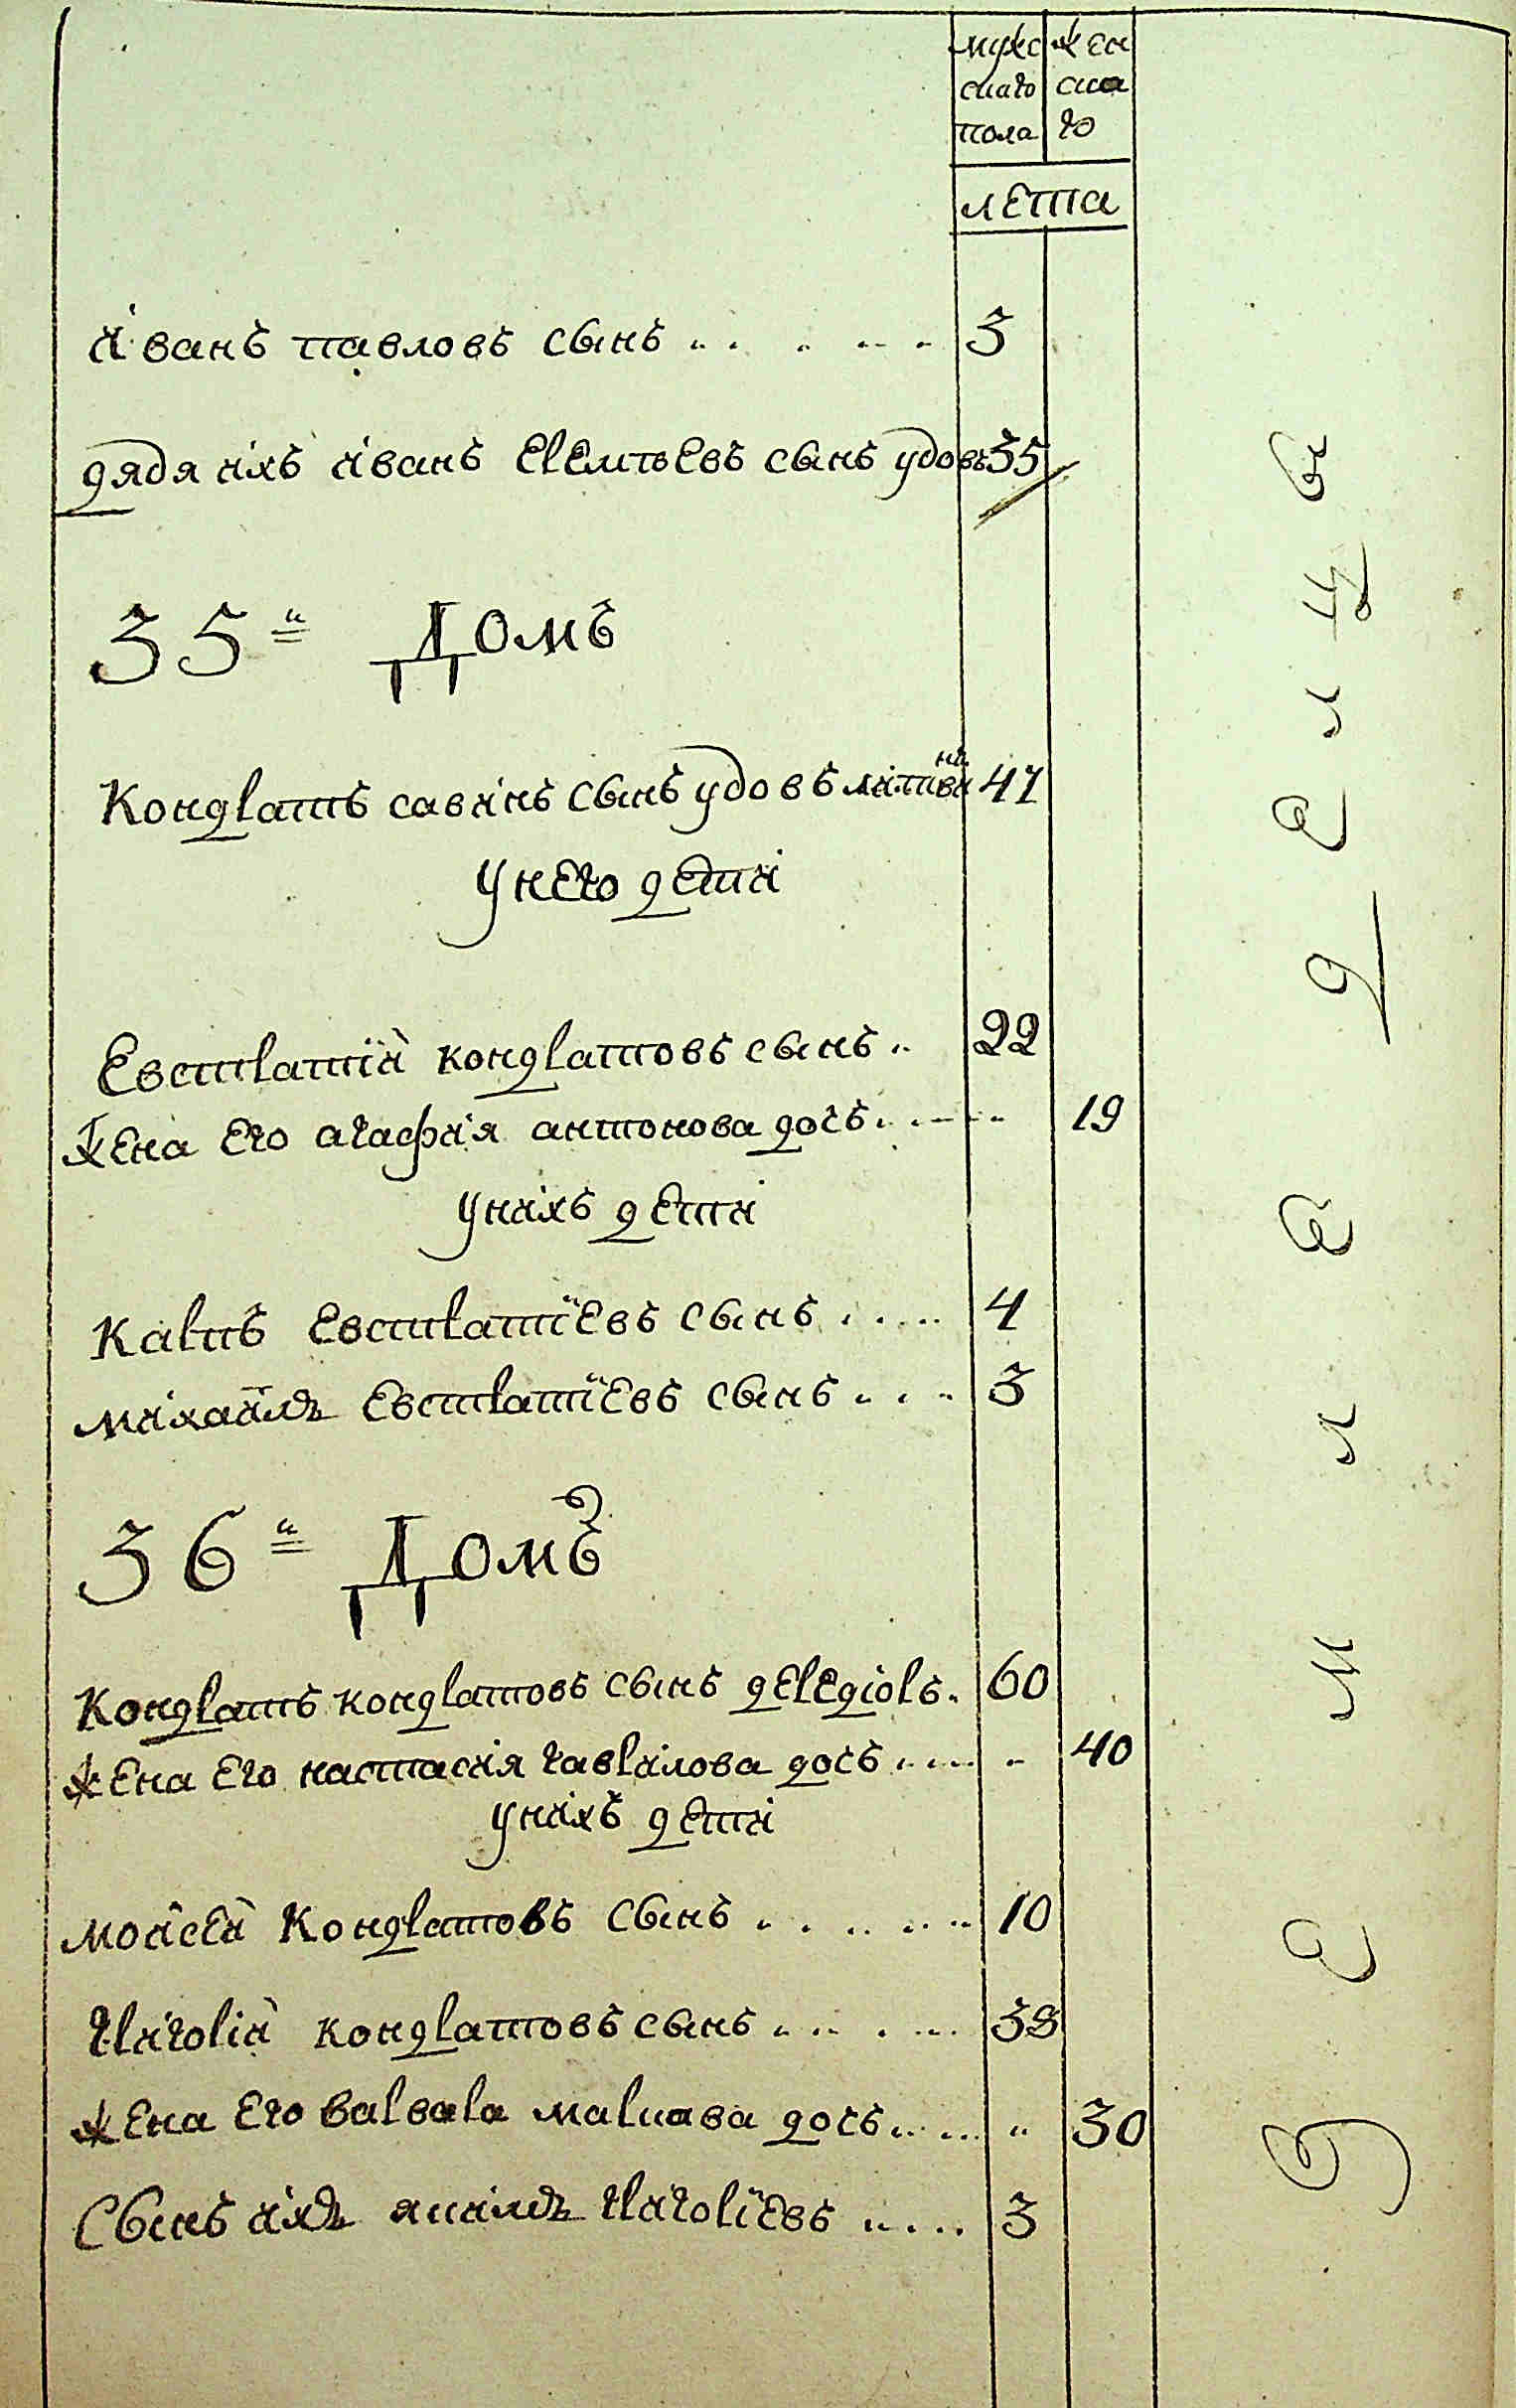 мужс жен
скаго ска
пола го
лета
иванъ павловъ сынъ 3
дядя ихъ иванъ еремѣевъ сынъ удовъ 35
35й Домъ
Кондратъ савинъ сынъ удовъ 47
Унего дети
Евстратий кондратовъ сынъ 22
Жена Его агафия антонова дочь 19
Унихъ дети
Карпъ Евстратиевъ сынъ 4
михаилъ Евстратиевъ сынъ 3
36й Домъ
Кондратъ кондратовъ сынъ 60
жена Его настасия гаврилова дочь 40
Унихъ дети
моисей Кондратовъ сынъ 10
григорий кондратовъ сынъ 38
жена Его варвара маркава дочь 30
Сынъ ихъ якимъ григориевъ 3